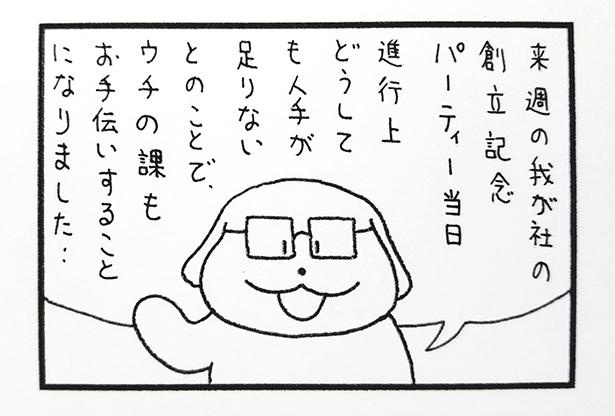 来週の我が社の
創立記念
パーティー当日
進行上
どうして
も人手が
足りない
とのことで、
ウチの課も
お手伝いすること
になりました‥